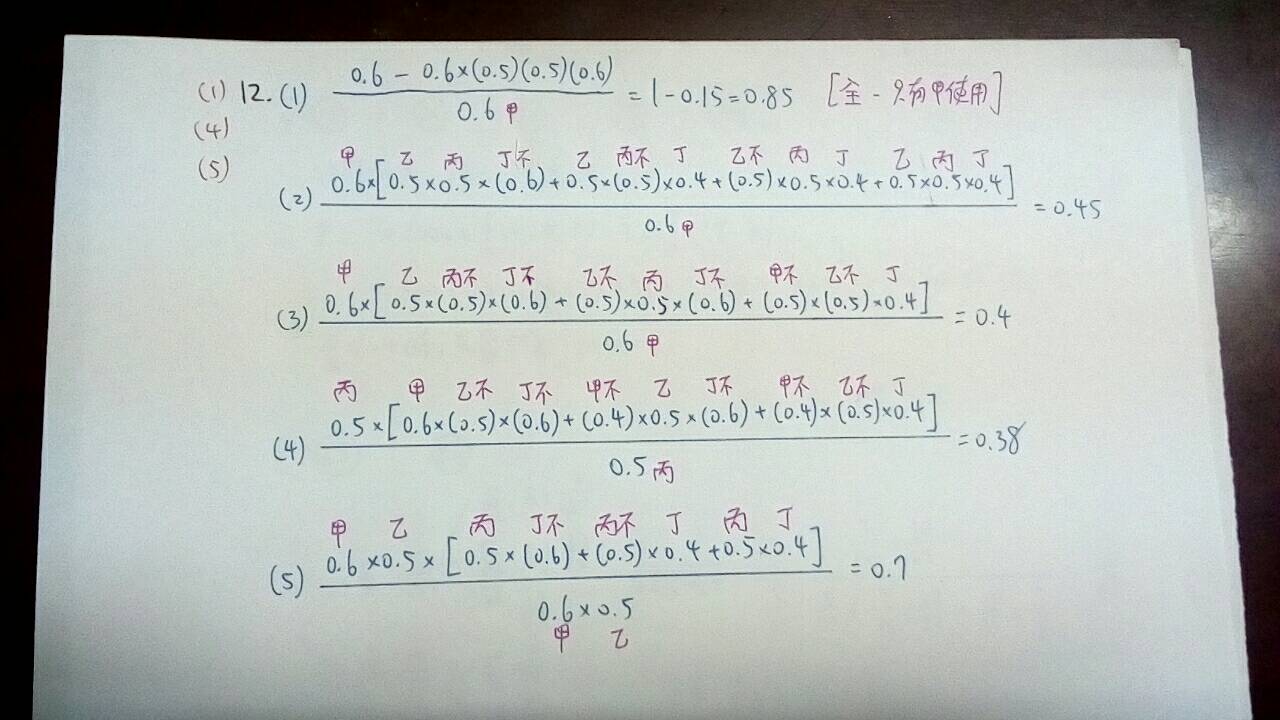 (1) 12. (1) 0.6 - 0.6×(0.5)(0.5)(0.6)
0.6 甲
= 1-0.15=0.85 [全 - 只有甲使用]
(4)
(5)
甲 乙 丙 丁不 乙 丙不 丁 乙不 丙 丁 乙 丙 丁
(2) 0.6×[0.5×0.5×(0.6)+0.5×(0.5)×0.4+(0.5)×0.5×0.4+0.5×0.5×0.4]
0.6 甲
= 0.45
甲 乙 丙不 丁不 乙不 丙 丁不 甲不 乙不 丁
(3) 0.6×[0.5×(0.5)×(0.6)+(0.5)×0.5×(0.6)+(0.5)×(0.5)×0.4]
0.6 甲
= 0.4
丙 甲 乙不 丁不 甲不 乙 丁不 甲不 乙不 丁
(4) 0.5×[0.6×(0.5)×(0.6)+(0.4)×0.5×(0.6)+(0.4)×(0.5)×0.4]
0.5 丙
=0.38
甲 乙 丙 丁不 丙不 丁 丙 丁
(5) 0.6×0.5×[0.5×(0.6)+(0.5)×0.4+0.5×0.4]
0.6×0.5
= 0.7
甲 乙